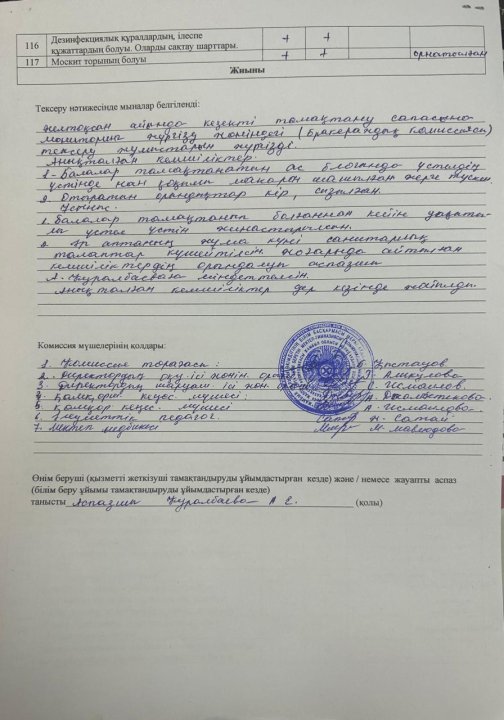 116 Дезинфекциялық құралдардың, ілеспе + +
құжаттардың болуы. Оларды сақтау шарттары.
117 Москит торының болуы + + орнатылған
Жиыны
Тексеру нәтижесінде мыналар белгіленді:
Желтоқсан айында кезекті тамақтану сапасына
мониторинг жүргізу жөніндегі (Бракераждық комиссиясы)
тексеру жұмыстарын жүргізді.
Анықталған кемшіліктер.
1- Балалар тамақтанатын ас блогында үстелдің
үстінде нан макарон шашылған жерге түскен.
2. Отыратын орындықтар кір,
Ұсыныс.
1. Балалар тамақтанып болғаннан кейін
үстел үстін жинастырылсын.
2. Әр аптаның жұма күні санитарлық
талаптар күшейтілсін. Жоғарыда айтылған
кемшіліктердің орындалуы аспазшы
А. Нұралбаеваға міндеттелсін.
Анықталған кемшіліктер дер кезінде жойылды.
Комиссия мүшелерінің қолдары:
1. Комиссия төрағасы:
2. Директордың оқу ісі жөнін.
3. Директордың шаруаш. ісі жөн.  С. Исмаилов.
 қамқорш. кеңес мүшесі:
5. қамқор кеңес. мүшесі А. Исмаилова
6. Әлеуметтік педагог. Н. Сатай
7. Мектеп медбикесі М. Мавлюдова
Өнім беруші (қызметті жеткізуші тамақтандыруды ұйымдастырған кезде) және / немесе жауапты аспаз
(білім беру ұйымы тамақтандыруды ұйымдастырған кезде)
танысты Аспазшы Нуралбаева А Е. (қолы)